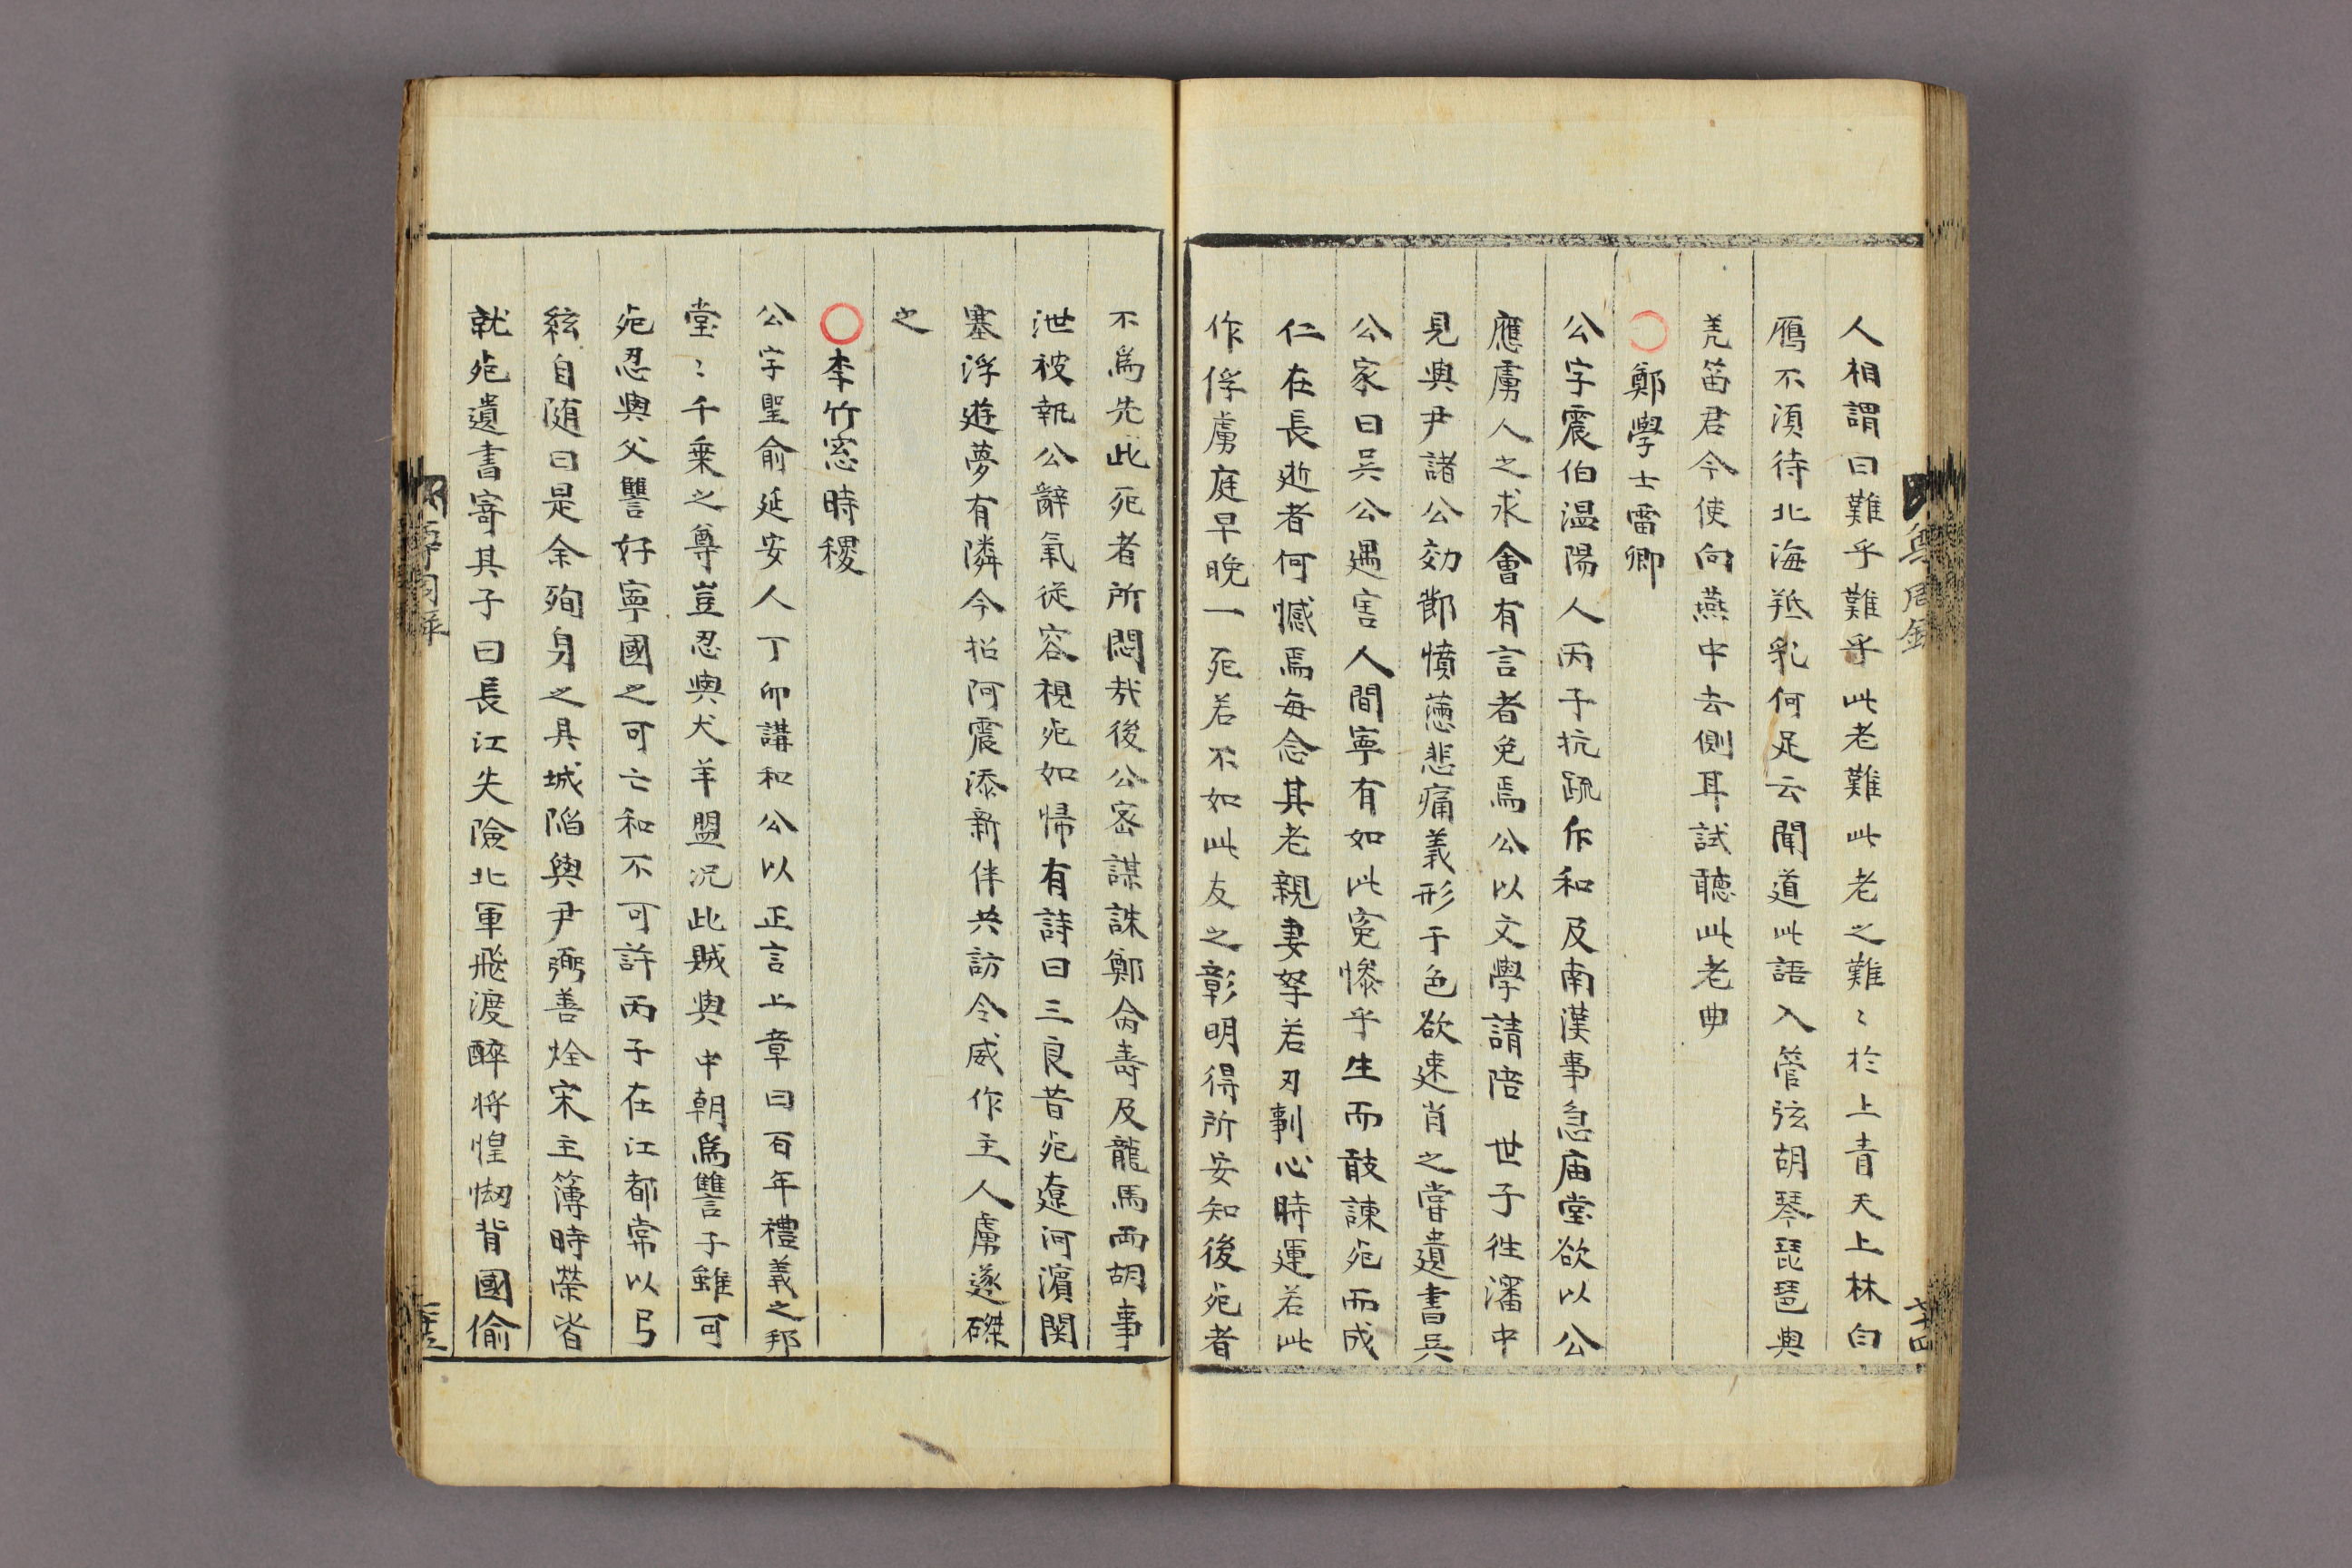 人相謂曰難乎難乎此老難此老之難〻於上青天上林白
鴈不須待北海羝乳何足云聞道此語入管弦胡琴琵琶與
羌笛君今使向燕中去側耳試聽此老曲
○鄭學士雷卿
公字震伯温陽人丙子抗疏斥和及南漢事急庙堂欲以公
應虜人之求會有言者免焉公以文學請陪 世子徃瀋中
見與尹諸公効節憤懣悲痛義形于色欲速肖之嘗遺書吳
公家曰吳公遇害人間寧有如此寃慘乎生而敢諫死而成
仁在長逝者何憾焉每念其老親妻孥若刃剚心時運若此
作俘虜庭早晚一死若不如此友之彰明得所安知後死者
不爲先此死者所悶哉後公密謀誅鄭命壽及龍馬兩胡事
泄被執公辭氣從容視死如帰有詩曰三良昔死遼河濵関
塞浮遊夢有隣今招阿震添新伴共訪令威作主人虜遂磔
之
○李竹窓時稷
公字聖俞延安人丁卯講和公以正言上章曰百年禮義之邦
堂〻千乗之尊豈忍與犬羊盟况此賊與 中朝爲讐子雖可
死忍與父讐好寧國之可亡和不可許丙子在江都常以弓
絃自随曰是余殉身之具城陷與尹弼善烇宋主簿時榮皆
就死遺書寄其子曰長江失險北軍飛渡醉将惶㤼背國偷